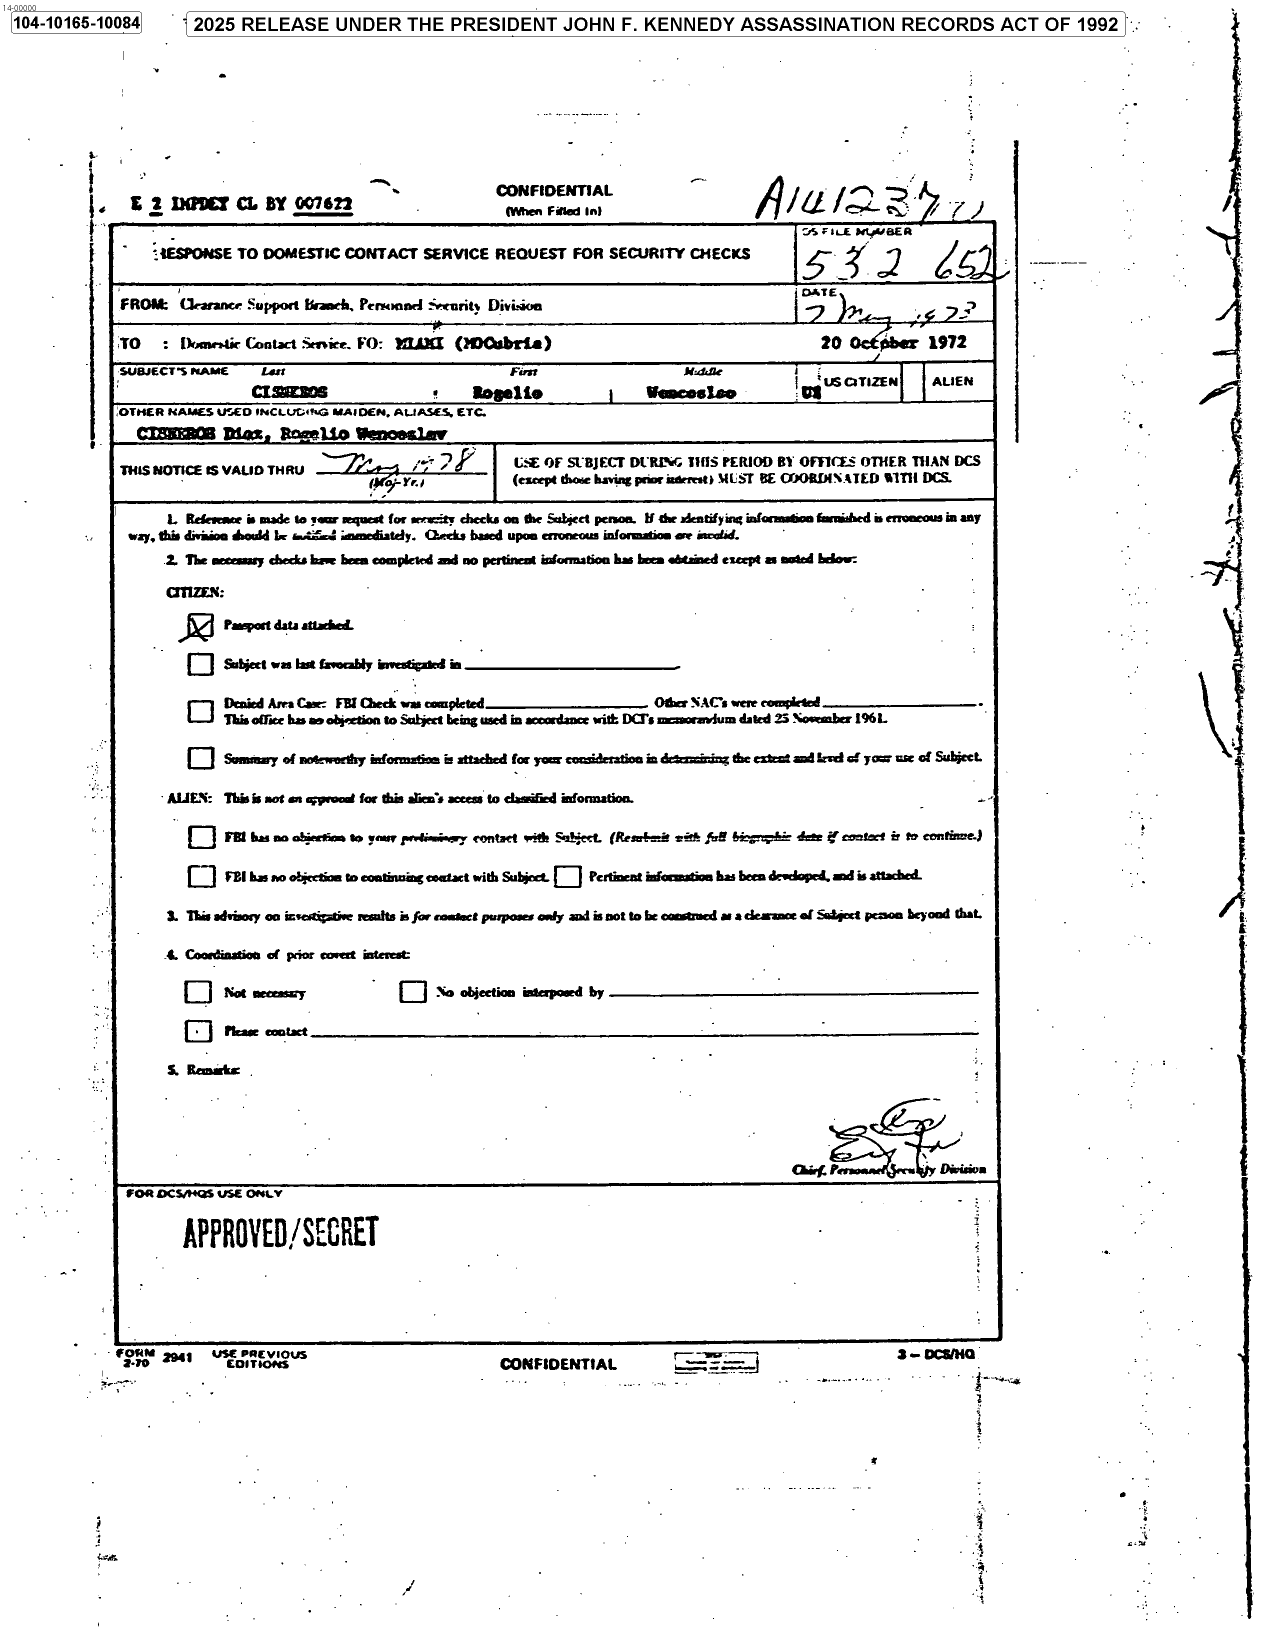 14-00000
104-10165-10084
2025 RELEASE UNDER THE PRESIDENT JOHN F. KENNEDY ASSASSINATION RECORDS ACT OF 1992
E 2 IMPDET CL BY 007622
CONFIDENTIAL
(When Filled In)
A141237
RESPONSE TO DOMESTIC CONTACT SERVICE REQUEST FOR SECURITY CHECKS
OS FILE NUMBER
532 652
FROM: Clearance Support Branch, Personnel Security Division
DATE
7 May 1973
TO : Domestic Contact Service. FO: MIAMI (MOCubria)
20 October 1972
SUBJECT'S NAME Last First Middle
CISNEROS Rogelio Wenceslao
US US CITIZEN ALIEN
OTHER NAMES USED INCLUDING MAIDEN, ALIASES, ETC.
CISNEROS Diaz, Rogelio Wenceslav
THIS NOTICE IS VALID THRU May 1978
(Mo.-Yr.)
USE OF SUBJECT DURING THIS PERIOD BY OFFICES OTHER THAN DCS
(except those having prior interest) MUST BE COORDINATED WITH DCS.
1. Reference is made to your request for security checks on the Subject person. If the identifying information furnished is erroneous in any
way, this division should be notified immediately. Checks based upon erroneous information are invalid.
2. The necessary checks have been completed and no pertinent information has been obtained except as noted below:
CITIZEN:
Passport data attached.
Subject was last favorably investigated in
Denied Area Case: FBI Check was completed Other NAC's were completed .
This office has no objection to Subject being used in accordance with DCI's memorandum dated 25 November 1961.
Summary of noteworthy information is attached for your consideration in determining the extent and level of your use of Subject.
ALIEN: This is not an approval for this alien's access to classified information.
FBI has no objection to your preliminary contact with Subject. (Resubmit with full biographic data if contact is to continue.)
FBI has no objection to continuing contact with Subject. Pertinent information has been developed, and is attached.
3. This advisory on investigative results is for contact purposes only and is not to be construed as a clearance of Subject person beyond that.
4. Coordination of prior covert interest:
Not necessary No objection interposed by
Please contact
5. Remarks:
Chief, Personnel Security Division
FOR DCS/HQS USE ONLY
APPROVED/SECRET
FORM 2-70 2941 USE PREVIOUS EDITIONS
CONFIDENTIAL
3 - DCS/HQ